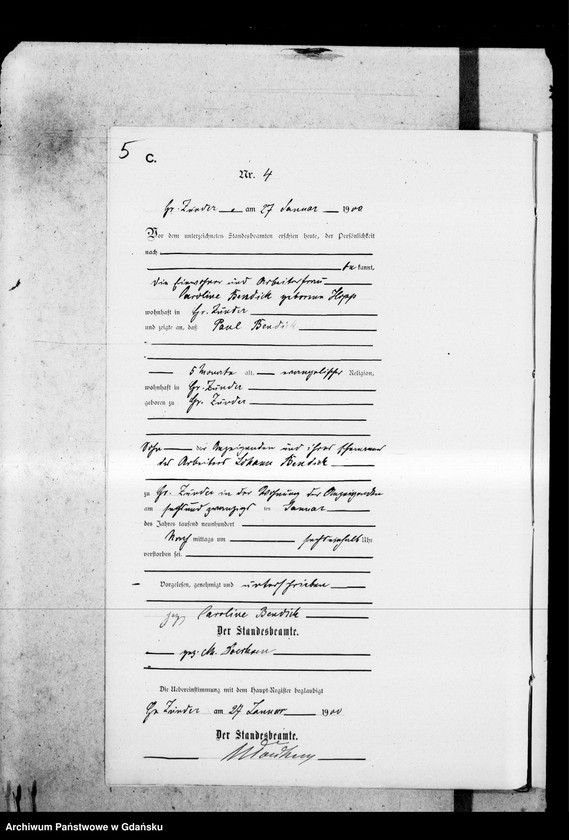 5 C.
Nr. 4
Gr. Zünder am 27 Januar 1900
Vor dem unterzeichneten Standesbeamten erschien heute, der Persönlichkeit
nach
bekannt,
die Einwohner und Arbeiterfrau
Caroline Bendick geborene Hopp
wohnhaft in Gr. Zünder
und zeigte an, daß Paul Bendick
5 Monate alt, evangelischer Religion,
wohnhaft in Gr. Zünder
geboren zu Gr. Zünder
Sohn der Anzeigenden und ihres Ehemannes
des Arbeiters Johann Bendick
zu Gr. Zünder in der Wohnung der Anzeigenden
am sechsundzwanzigsten Januar
des Jahres tausend neunhundert
Nachmittags um Uhr
verstorben sei.
Vorgelesen, genehmigt und unterschrieben
gez. Caroline Bendick
Der Standesbeamte.
gez. M.
Die Uebereinstimmung mit dem Haupt-Register beglaubigt
Gr. Zünder am 27 Januar 1900
Der Standesbeamte.
Archiwum Państwowe w Gdańsku